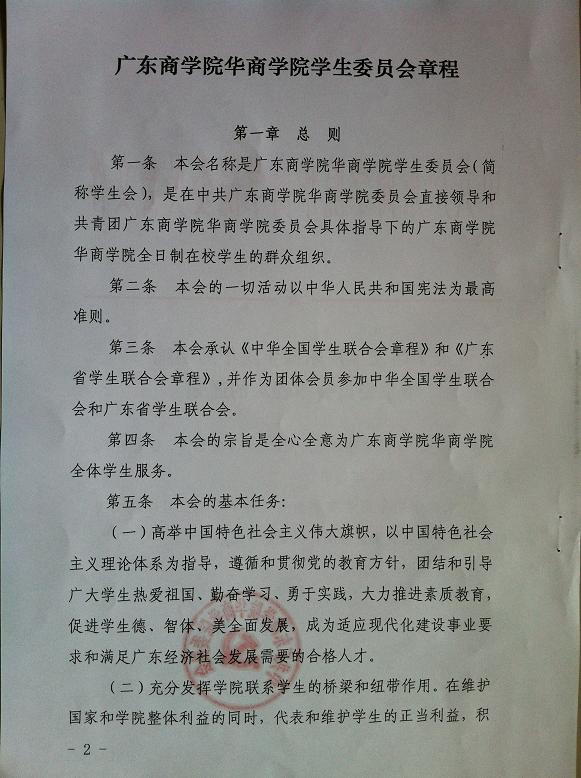 广东商学院华商学院学生委员会章程
第一章 总 则
第一条 本会名称是广东商学院华商学院学生委员会(简
称学生会),是在中共广东商学院华商学院委员会直接领导和
共青团广东商学院华商学院委员会具体指导下的广东商学院
华商学院全日制在校学生的群众组织。
第二条 本会的一切活动以中华人民共和国宪法为最高
准则。
第三条 本会承认《中华全国学生联合会章程》和《广东
省学生联合会章程》,并作为团体会员参加中华全国学生联合
会和广东省学生联合会。
第四条 本会的宗旨是全心全意为广东商学院华商学院
全体学生服务。
第五条 本会的基本任务:
(一)高举中国特色社会主义伟大旗帜,以中国特色社会
主义理论体系为指导,遵循和贯彻党的教育方针,团结和引导
广大学生热爱祖国、勤奋学习、勇于实践,大力推进素质教育,
促进学生德、智体、美全面发展,成为适应现代化建设事业要
求和满足广东经济社会发展需要的合格人才。
(二)充分发挥学院联系学生的桥梁和纽带作用。在维护
国家和学院整体利益的同时,代表和维护学生的正当利益,积
- 2 -